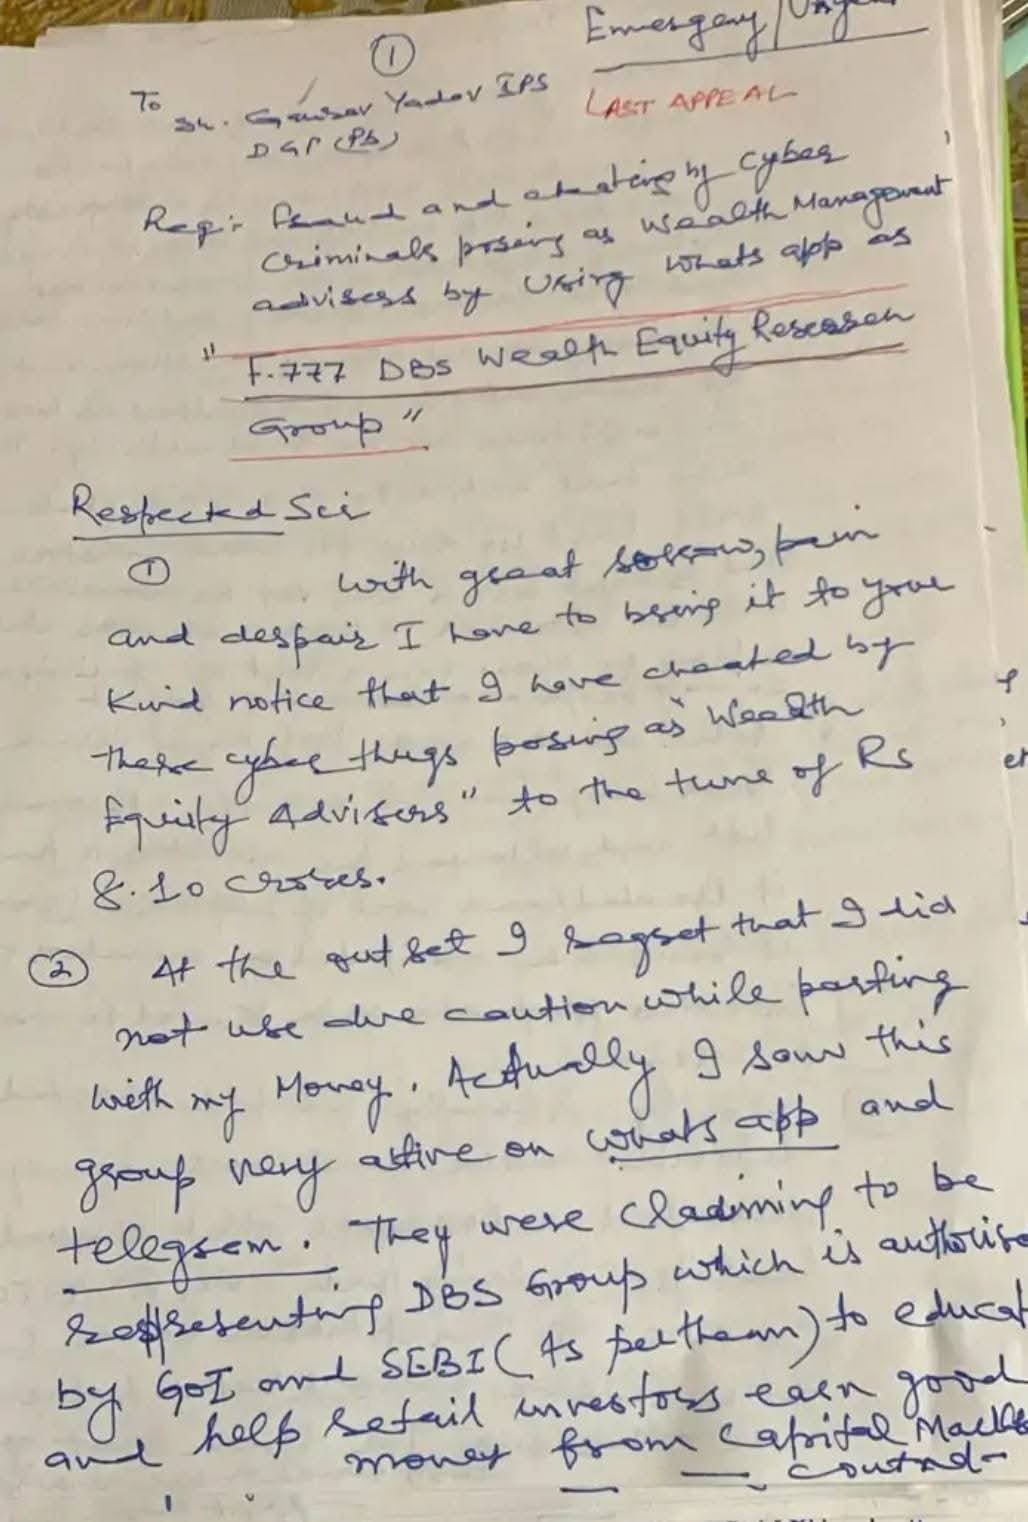 ①
Emergency/Urgent
To
Sh. Gaurav Yadav IPS
DGP (Pb)
LAST APPEAL
Reg:- Fraud and cheating by cyber
criminals posing as Wealth Management
advisers by Using Whats app as
"F.777 DBS Wealth Equity Research
Group"
Respected Sir
① with great sorrow, pain
and despair I have to bring it to your
Kind notice that I have cheated by
these cyber thugs posing as "Wealth
Equity Advisers" to the tune of Rs
8.10 crores.
② At the outset I regret that I did
not use due caution while parting
with my Money. Actually I saw this
group very active on whats app and
telegram. They were claiming to be
representing DBS Group which is authorise
by GoI and SEBI (As per them) to educat
and help retail investors earn good
money from Capital Mark
— contnd-